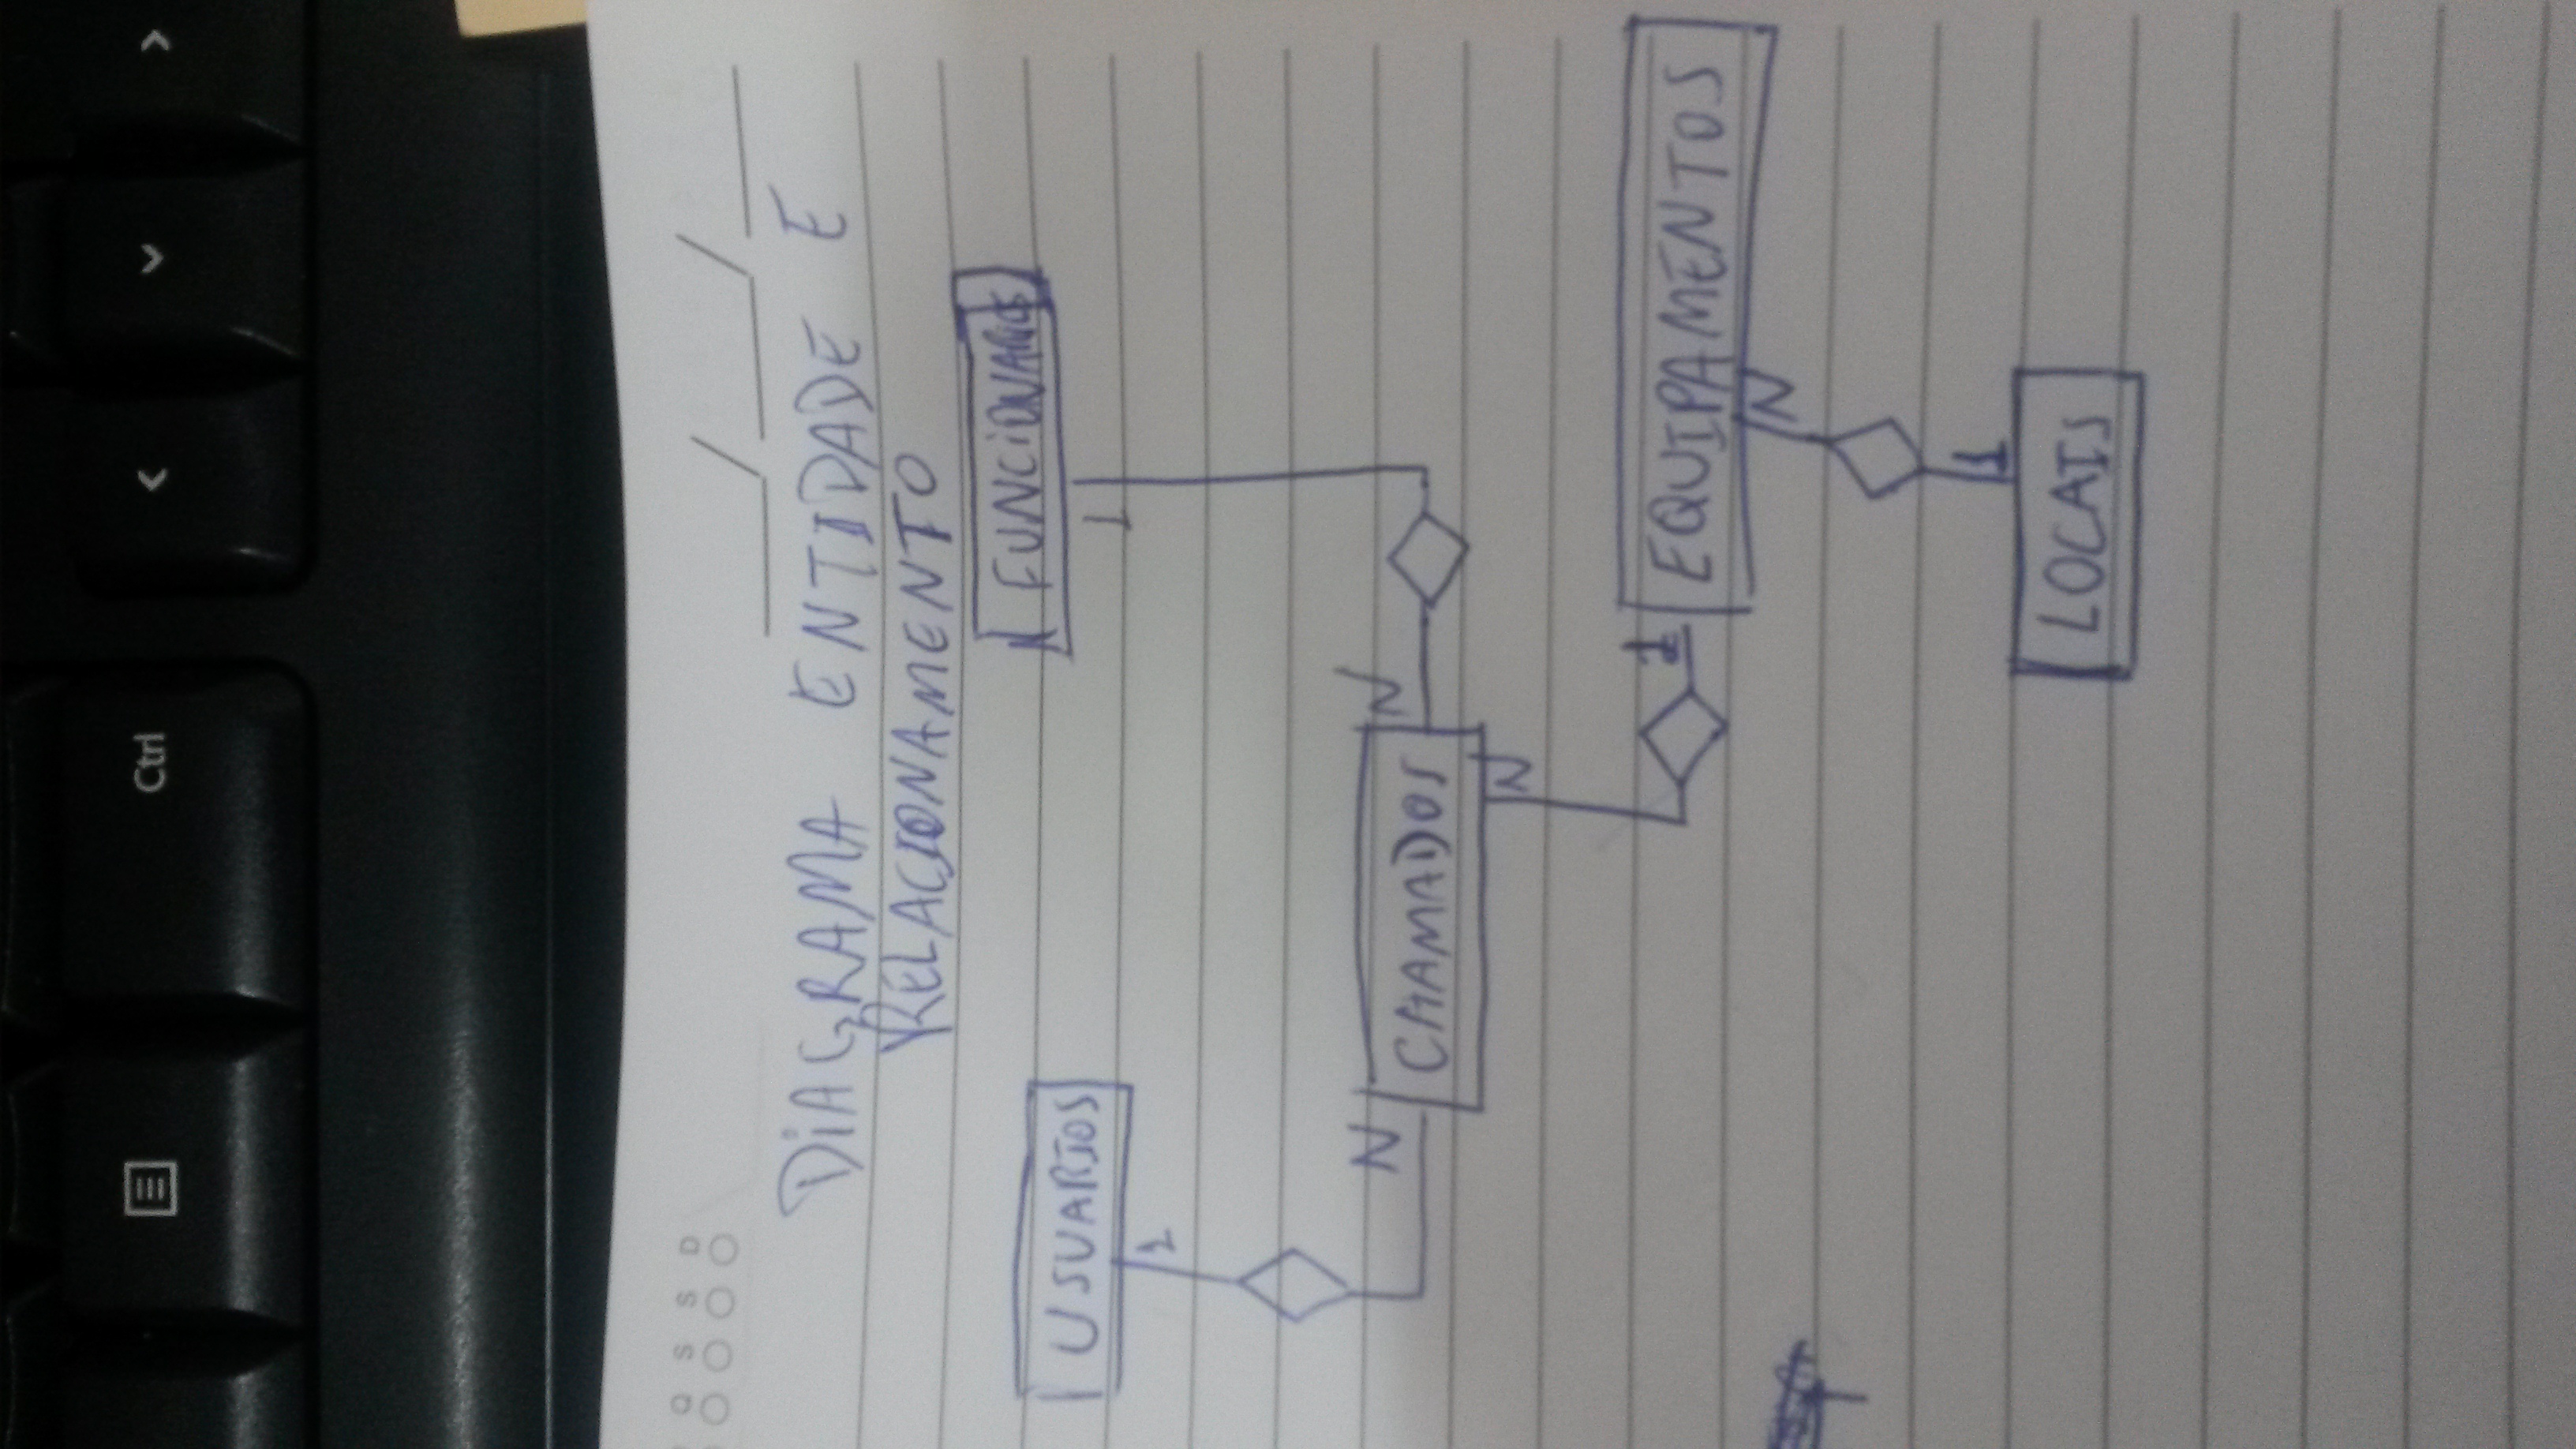 Ctrl
Q S S D
DIAGRAMA ENTIDADE E
RELACIONAMENTO
FUNCIONARIOS
USUARIOS
1
1
N
N
CHAMADOS
N
1
EQUIPAMENTOS
N
1
LOCAIS